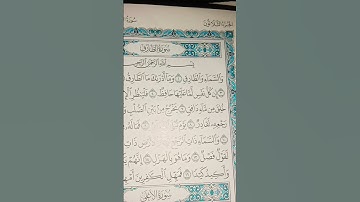 الجزء الثلاثون
سورة
سورة الطارق
بسم الله الرحمن الرحيم
وَالسَّمَاءِ وَالطَّارِقِ ۝١ وَمَا أَدْرَىٰكَ مَا الطَّارِقُ
إِن كُلُّ نَفْسٍ لَّمَّا عَلَيْهَا حَافِظٌ ۝٤ فَلْيَنظُرِ
خُلِقَ مِن مَّاءٍ دَافِقٍ ۝٦ يَخْرُجُ مِن بَيْنِ الصُّلْبِ
رَجْعِهِ لَقَادِرٌ ۝٨ يَوْمَ فَمَا لَهُ
وَالسَّمَاءِ ذَاتِ الرَّجْعِ ۝١١ وَالْأَرْضِ ذَاتِ
لَقَوْلٌ فَصْلٌ ۝١٣ وَمَا هُوَ بِالْهَزْلِ ۝١٤ إِنَّهُمْ
وَأَكِيدُ كَيْدًا ۝١٦ فَمَهِّلِ الْكَٰفِرِينَ
سورة الأعلى